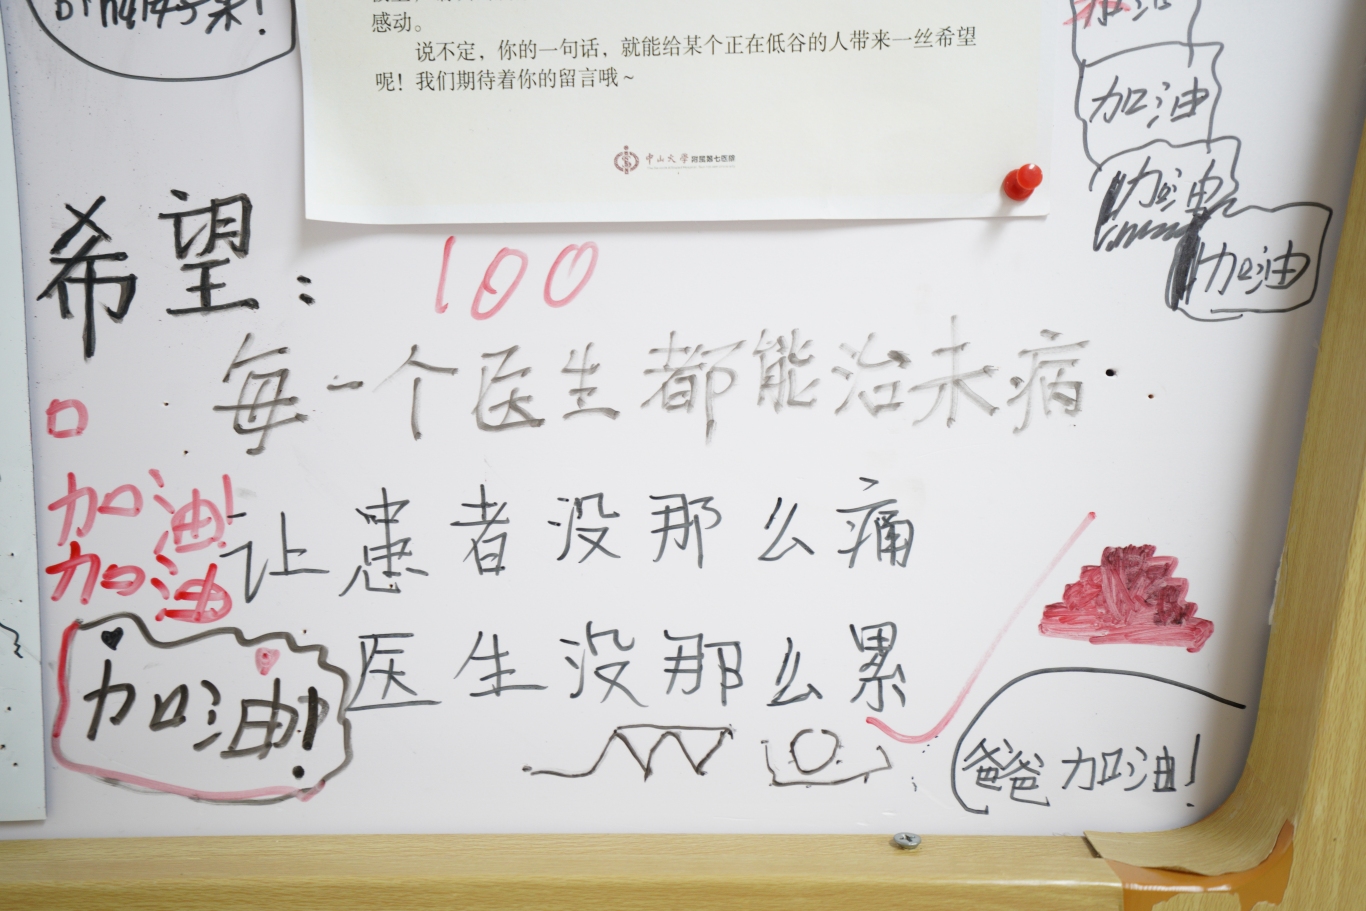 感动。
说不定，你的一句话，就能给某个正在低谷的人带来一丝希望
呢！我们期待着你的留言哦~
中山大学附属第七医院
加油
加油
加油
加油
希望：
100
每一个医生都能治未病
让患者没那么痛
医生没那么累
加油!
加油
加油!
爸爸加油!